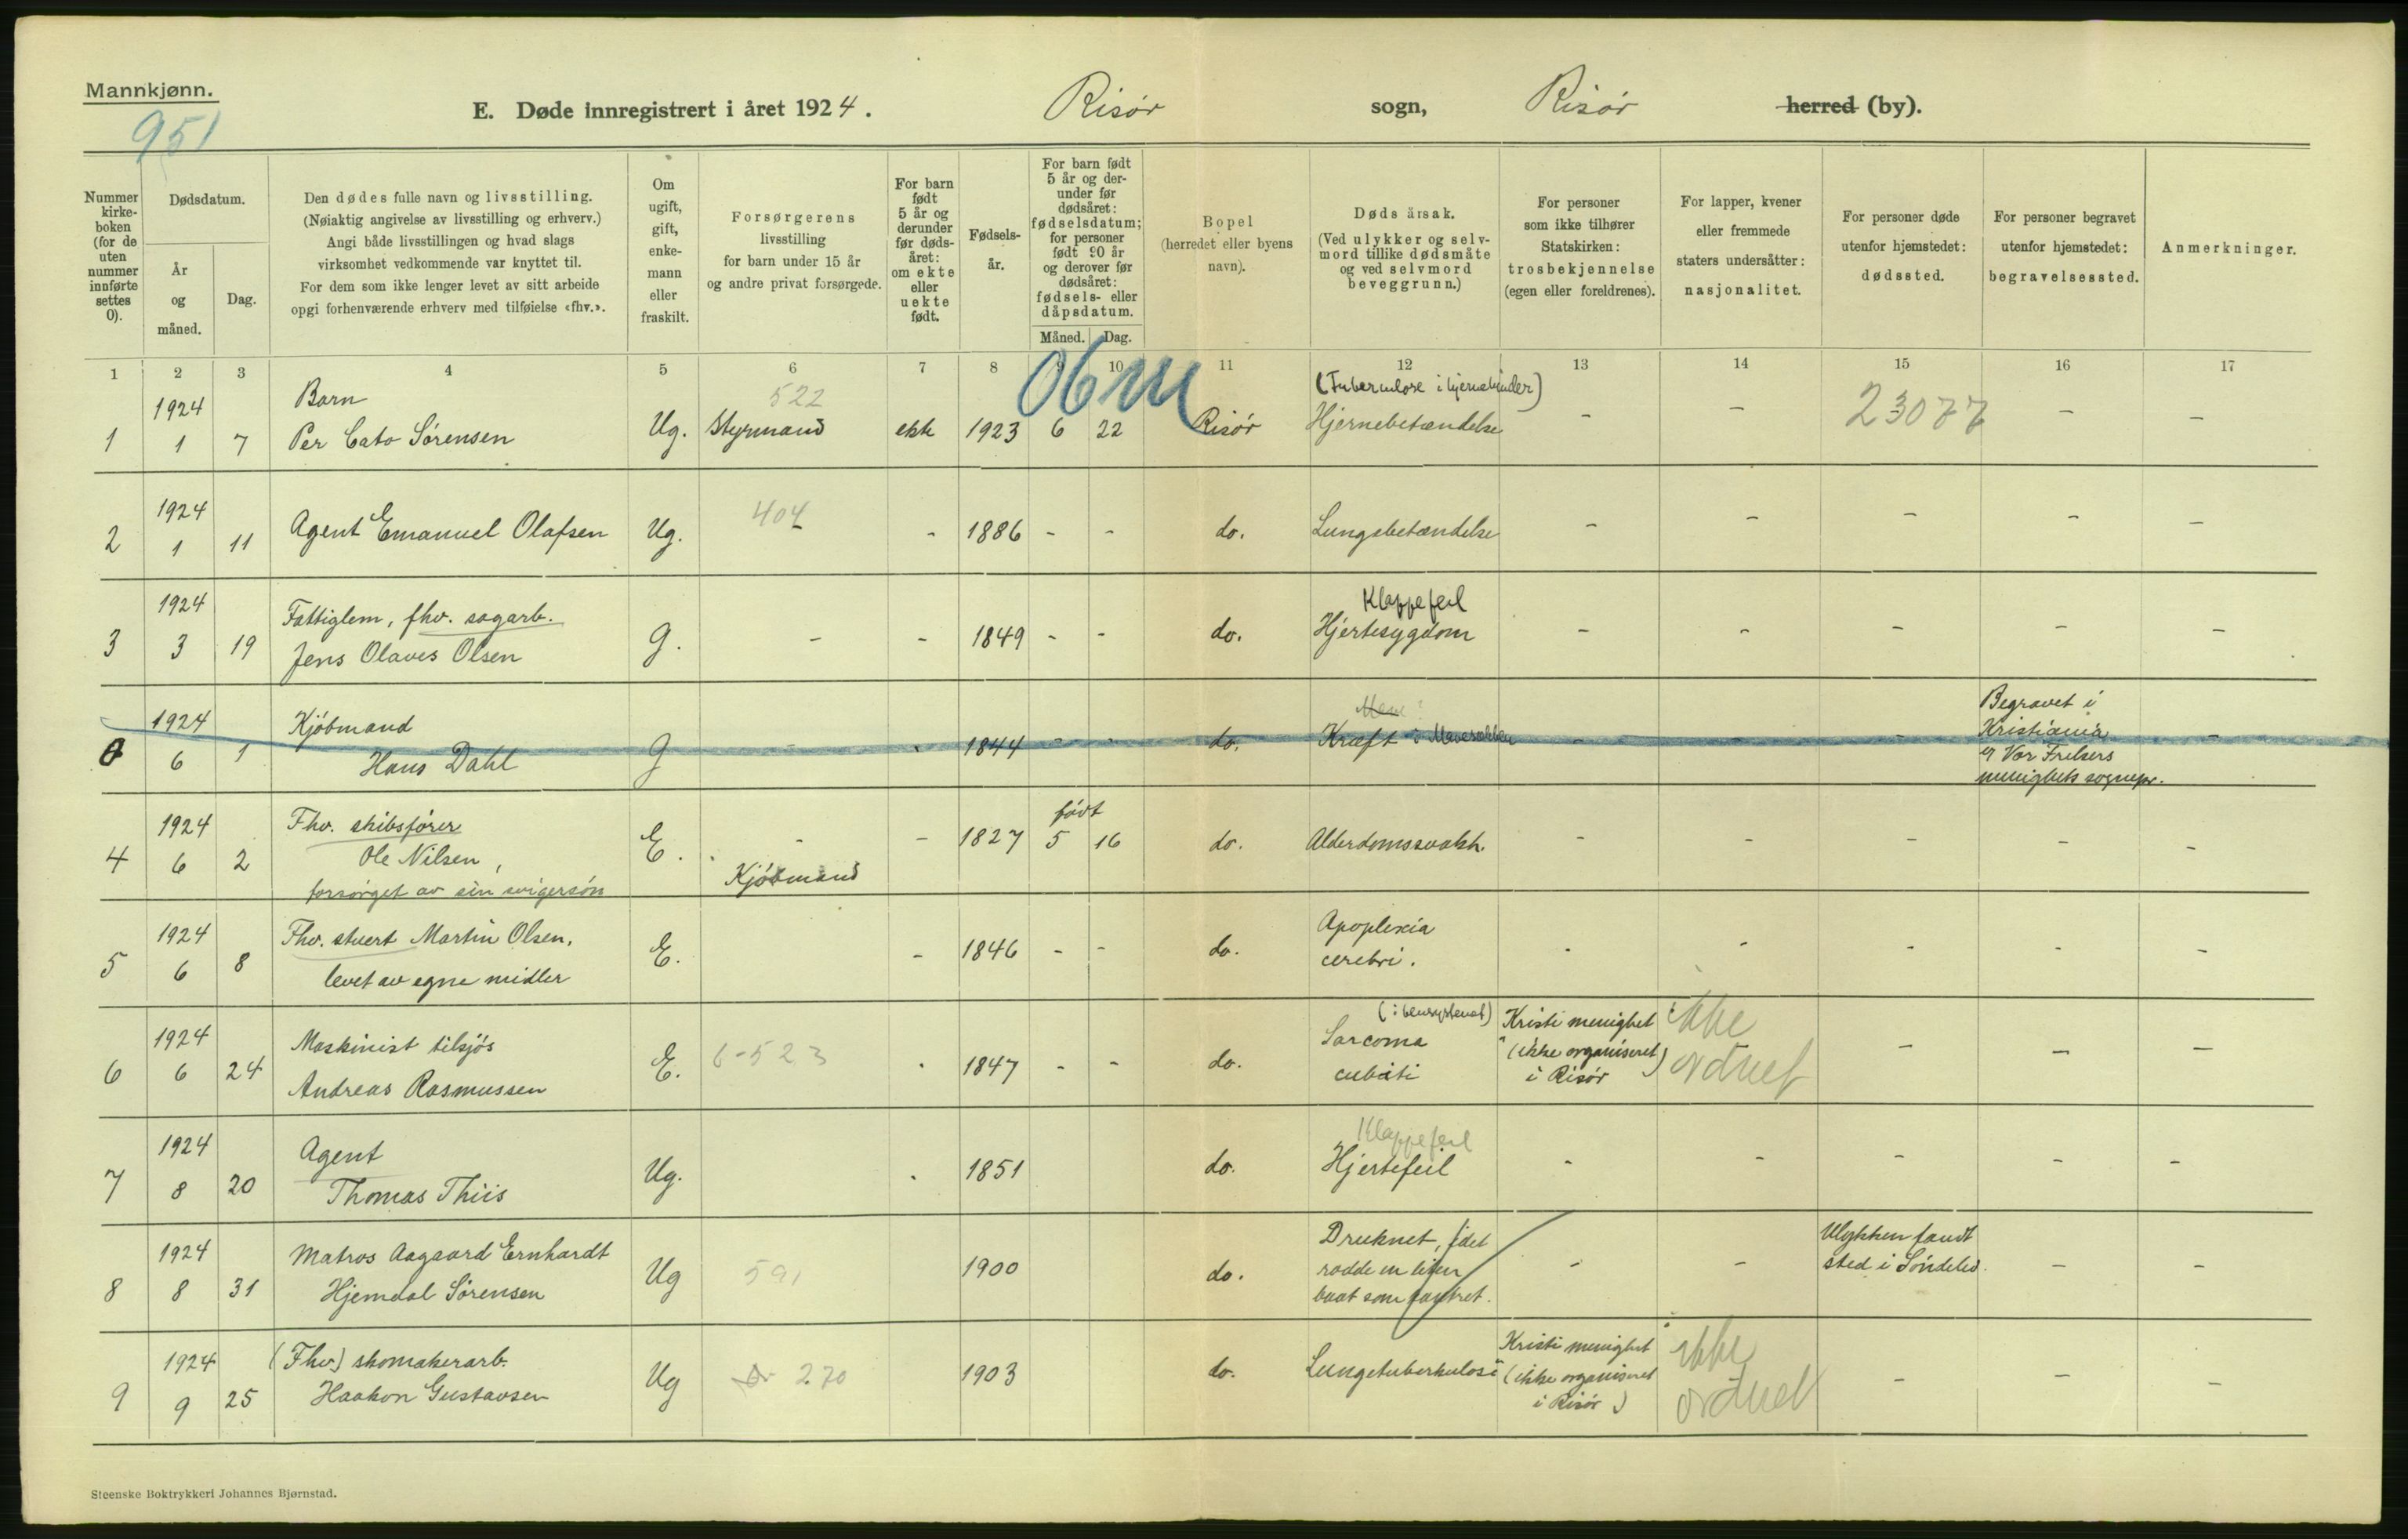 Mannkjønn.
951
E. Døde innregistrert i året 1924. Risör sogn, Risör herred (by).
Nummer kirkeboken (for de uten nummer innførte settes 0).
Dødsdatum.
År og måned.
Dag.
Den dødes fulle navn og livsstilling.
(Nøiaktig angivelse av livsstilling og erhverv.)
Angi både livsstillingen og hvad slags
virksomhet vedkommende var knyttet til.
For dem som ikke lenger levet av sitt arbeide
opgi forhenværende erhverv med tilføielse «fhv.».
Om ugift, gift, enkemann eller fraskilt.
Forsørgerens
livsstilling
for barn under 15 år
og andre privat forsørgede.
For barn født 5 år og derunder før dødsåret: om ekte eller uekte født.
Fødselsår.
For barn født 5 år og derunder før dødsåret: fødselsdatum; for personer født 90 år og derover før dødsåret: fødsels- eller dåpsdatum.
Måned. Dag.
Bopel
(herredet eller byens
navn).
Døds årsak.
(Ved ulykker og selvmord tillike dødsmåte og ved selvmord beveggrunn.)
For personer
som ikke tilhører
Statskirken:
trosbekjennelse
(egen eller foreldrenes).
For lapper, kvener
eller fremmede
staters undersåtter:
nasjonalitet.
For personer døde
utenfor hjemstedet:
dødssted.
For personer begravet
utenfor hjemstedet:
begravelsessted.
Anmerkninger.
1 2 3 4 5 6 7 8 9 10 11 12 13 14 15 16 17
1924 Barn 522 (Tuberculose i hjernehinder)
1 1 7 Per Cato Sörensen Ug. Styrmand ekte 1923 6 22 Risör Hjernebetændelse - - 23077 - -
1924 404
2 1 11 Agent Emanuel Olafsen Ug. - 1886 - - do. Lungebetændelse - - - - -
1924 Fattiglem, fhv. sagarb. Klappefeil
3 3 19 Jens Olaves Olsen g. - - 1849 - - do. Hjertesygdom - - - - -
1924 Kjöbmand
0 6 1 Hans Dahl g - - 1844 - - do. Kræft i Mavesækken - - - Begravet i
Kristiania
Vor Frelsers
menighets sognepr.
1924 Fhv. skibsförer födt
4 6 2 Ole Nilsen, E. - - 1827 5 16 do. Alderdomssvakh. - - - - -
forsörget av sin svigersön Kjöbmand
1924 Fhv. stuert Martin Olsen, Apoplexia
5 6 8 levet av egne midler E. - 1846 - - do. cerebri. - - - - -
1924 Maskinist tilsjös (i bensystemet) Kristi menighet ikke
6 6 24 Andreas Rasmussen E. 6-523 - 1847 - - do. Sarcoma cubiti (ikke organiseret i Risör) ordnet - - -
1924 Agent Klappefeil
7 8 20 Thomas Thiis Ug. - 1851 do. Hjertefeil - - - - -
1924 Matros Aagaard Ernhardt Druknet, idet Ulykken fandt
8 8 31 Hjemdal Sörensen Ug 591 1900 do. rodde en liten - - sted i Söndeled. - -
baat som kantret.
1924 (Fhv.) skomakerarb. Kristi menighet ikke
9 9 25 Haakon Gustavsen Ug 270 1903 do. Lungetuberkulose (ikke organiseret i Risör) ordnet - - -
Steenske Boktrykkeri Johannes Bjørnstad.